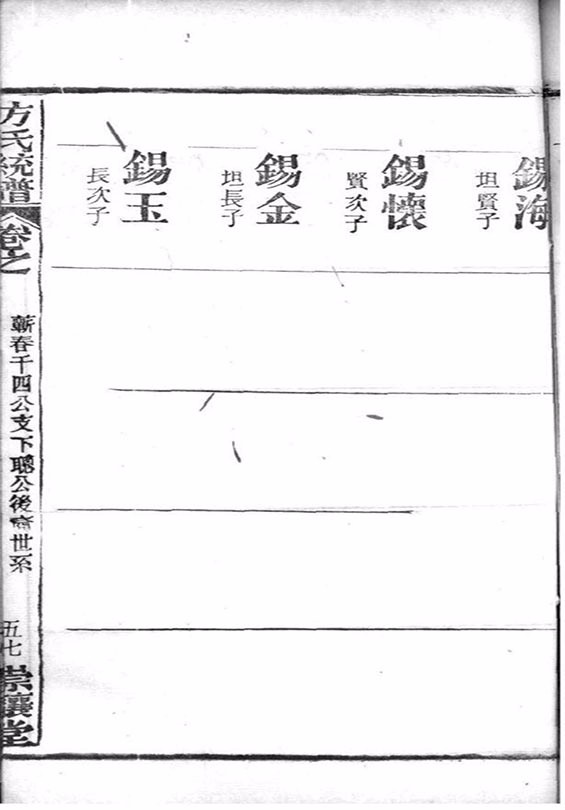 錫海
坦賢子
錫懷
賢次子
錫金
坦長子
錫玉
長次子
方氏統譜
卷之
蘄春千四公支下聰公後裔世系
五七
崇讓堂